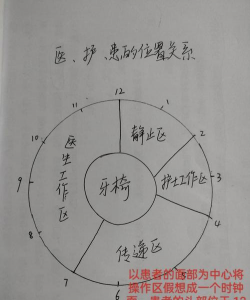 医、护、患的位置关系
12
11
1
10
2
静止区
医生工作区
9
牙椅
护士工作区
3
8
4
传递区
7
6
以患者的面部为中心将
操作区假想成一个时钟